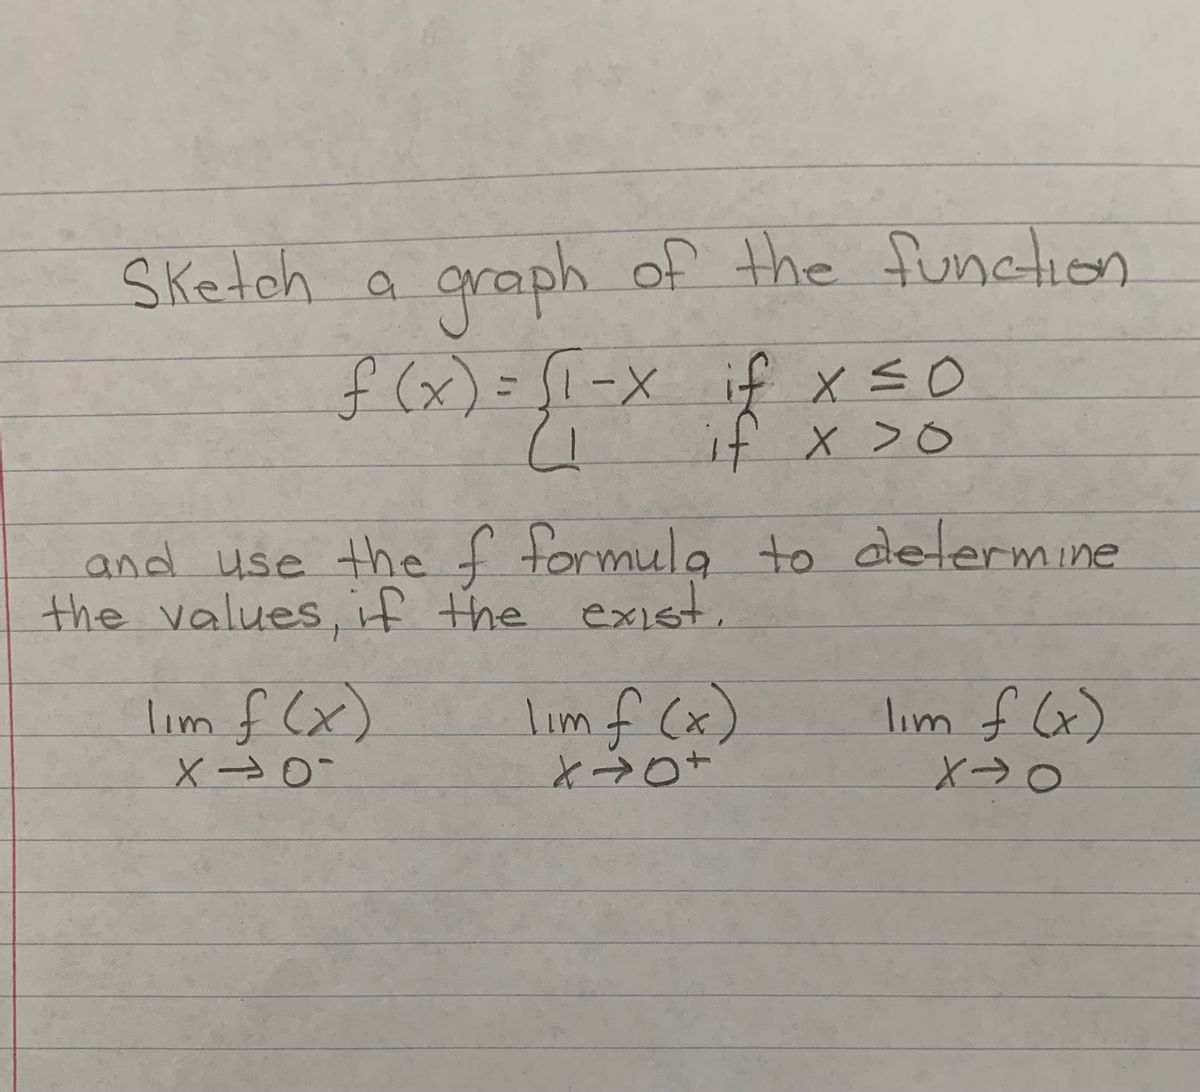 Sketch a graph of the function
f(x) = { 1-x if x ≤ 0
1 if x > 0
and use the f formula to determine
the values, if the exist.
lim f(x) lim f(x) lim f(x)
x → 0⁻ x → 0⁺ x → 0